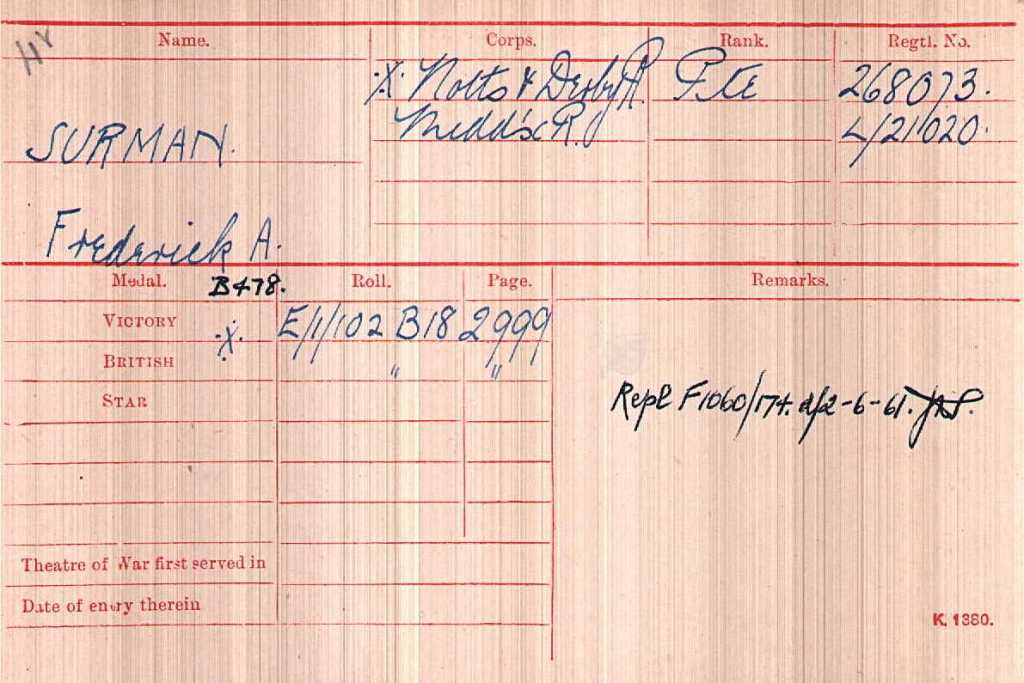 Name. Corps. Rank. Regtl. No.
·X· Notts & Derby R. Pte 268073.
Midd'x R. L/21020.
SURMAN.
Frederick A.
Medal. B478. Roll. Page. Remarks.
VICTORY ·X· E/1/102 B18 2999
BRITISH " "
STAR
Repl F1060/174. d/2-6-61.
Theatre of War first served in
Date of entry therein
K. 1380.